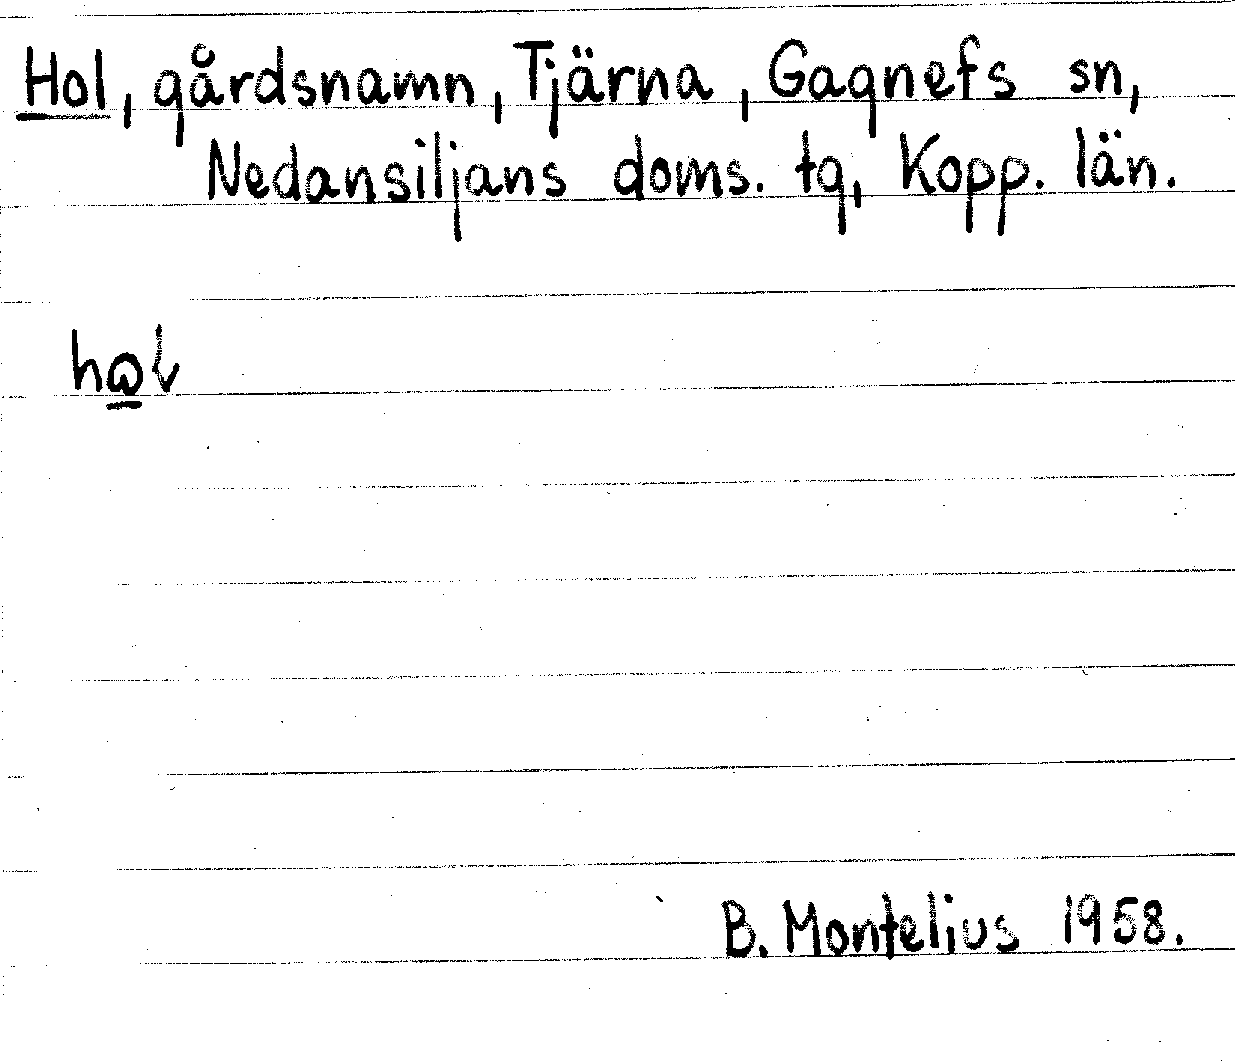 Hol, gårdsnamn, Tjärna, Gagnefs sn,
Nedansiljans doms. tg, Kopp. län.
B. Montelius 1958.